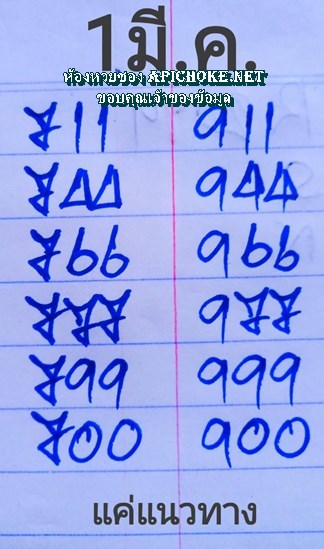 1มี.ค.
ห้องหวยซอง APICHOKE.NET
ขอบคุณเจ้าของข้อมูล
711 911
744 944
766 966
777 977
799 999
700 900
แค่แนวทาง